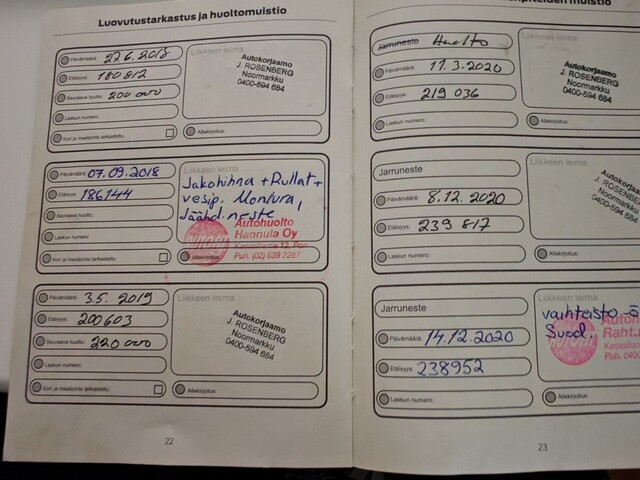 Luovutustarkastus ja huoltomuistio
Päivämäärä: 27.6.2018
Etäisyys: 180812
Seuraava huolto: 200 000
Laskun numero:
Kori ja maalipinta tarkastettu:
Liikkeen leima
Autokorjaamo
J. ROSENBERG
Noormarkku
0400-594 684
Allekirjoitus:
Päivämäärä: 07.09.2018
Etäisyys: 186144
Seuraava huolto:
Laskun numero:
Kori ja maalipinta tarkastettu:
Liikkeen leima
Jakohihna + Rullat +
vesip. Montura,
Jäähd. neste
Autohuolto
Hannula Oy
Karjasillantie 12, Pori
Puh. (02) 639 2287
Allekirjoitus:
Päivämäärä: 3.5. 2019
Etäisyys: 200603
Seuraava huolto: 220 000
Laskun numero:
Kori ja maalipinta tarkastettu:
Liikkeen leima
Autokorjaamo
J. ROSENBERG
Noormarkku
0400-594 684
Allekirjoitus:
22
muistio
Jarruneste Huolto
Päivämäärä: 11.3.2020
Etäisyys: 219 036
Laskun numero:
Liikkeen leima
Autokorjaamo
J. ROSENBERG
Noormarkku
0400-594 684
Allekirjoitus:
Jarruneste
Päivämäärä: 8.12. 2020
Etäisyys: 239 817
Laskun numero:
Liikkeen leima
Autokorjaamo
J. ROSENBERG
Noormarkku
0400-594 684
Allekirjoitus:
Jarruneste
Päivämäärä: 14.12.2020
Etäisyys: 238952
Laskun numero:
Liikkeen leima
vaihteisto
Suod.
Karjasillan
Puh. 040
Allekirjoitus:
23